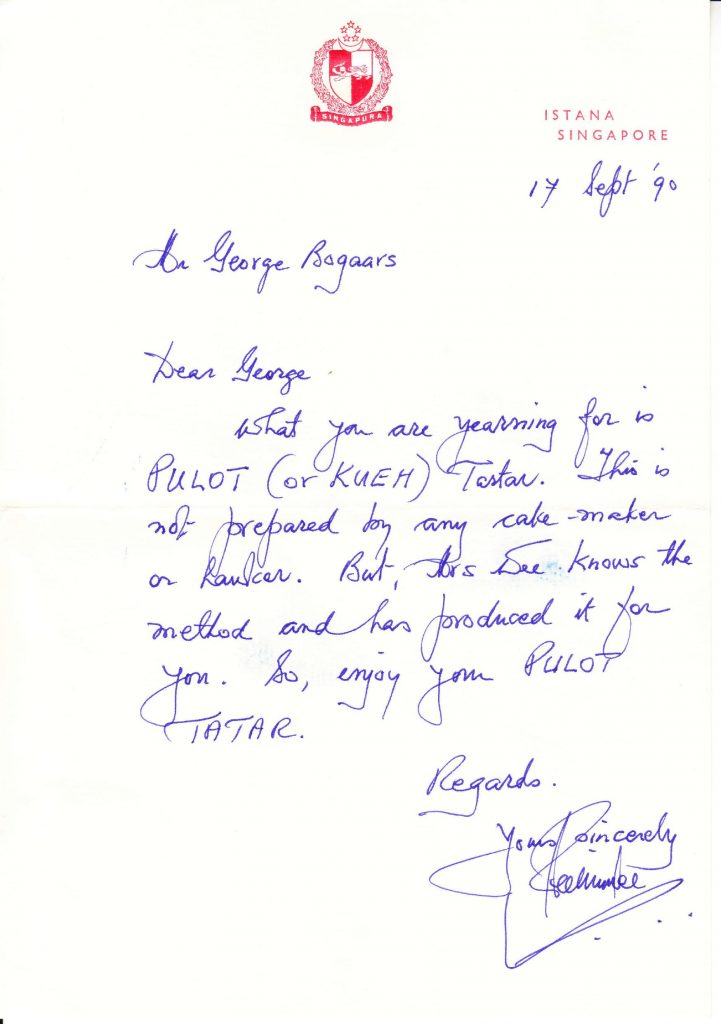 SINGAPURA
ISTANA
SINGAPORE
17 Sept '90
Mr George Bogaars
Dear George
What you are yearning for is
PULOT (or KUEH) Tartar. This is
not prepared by any cake-maker
or hawker. But, Mrs Wee knows the
method and has produced it for
you. So, enjoy your PULOT
TATAR.
Regards.
Yours Sincerely